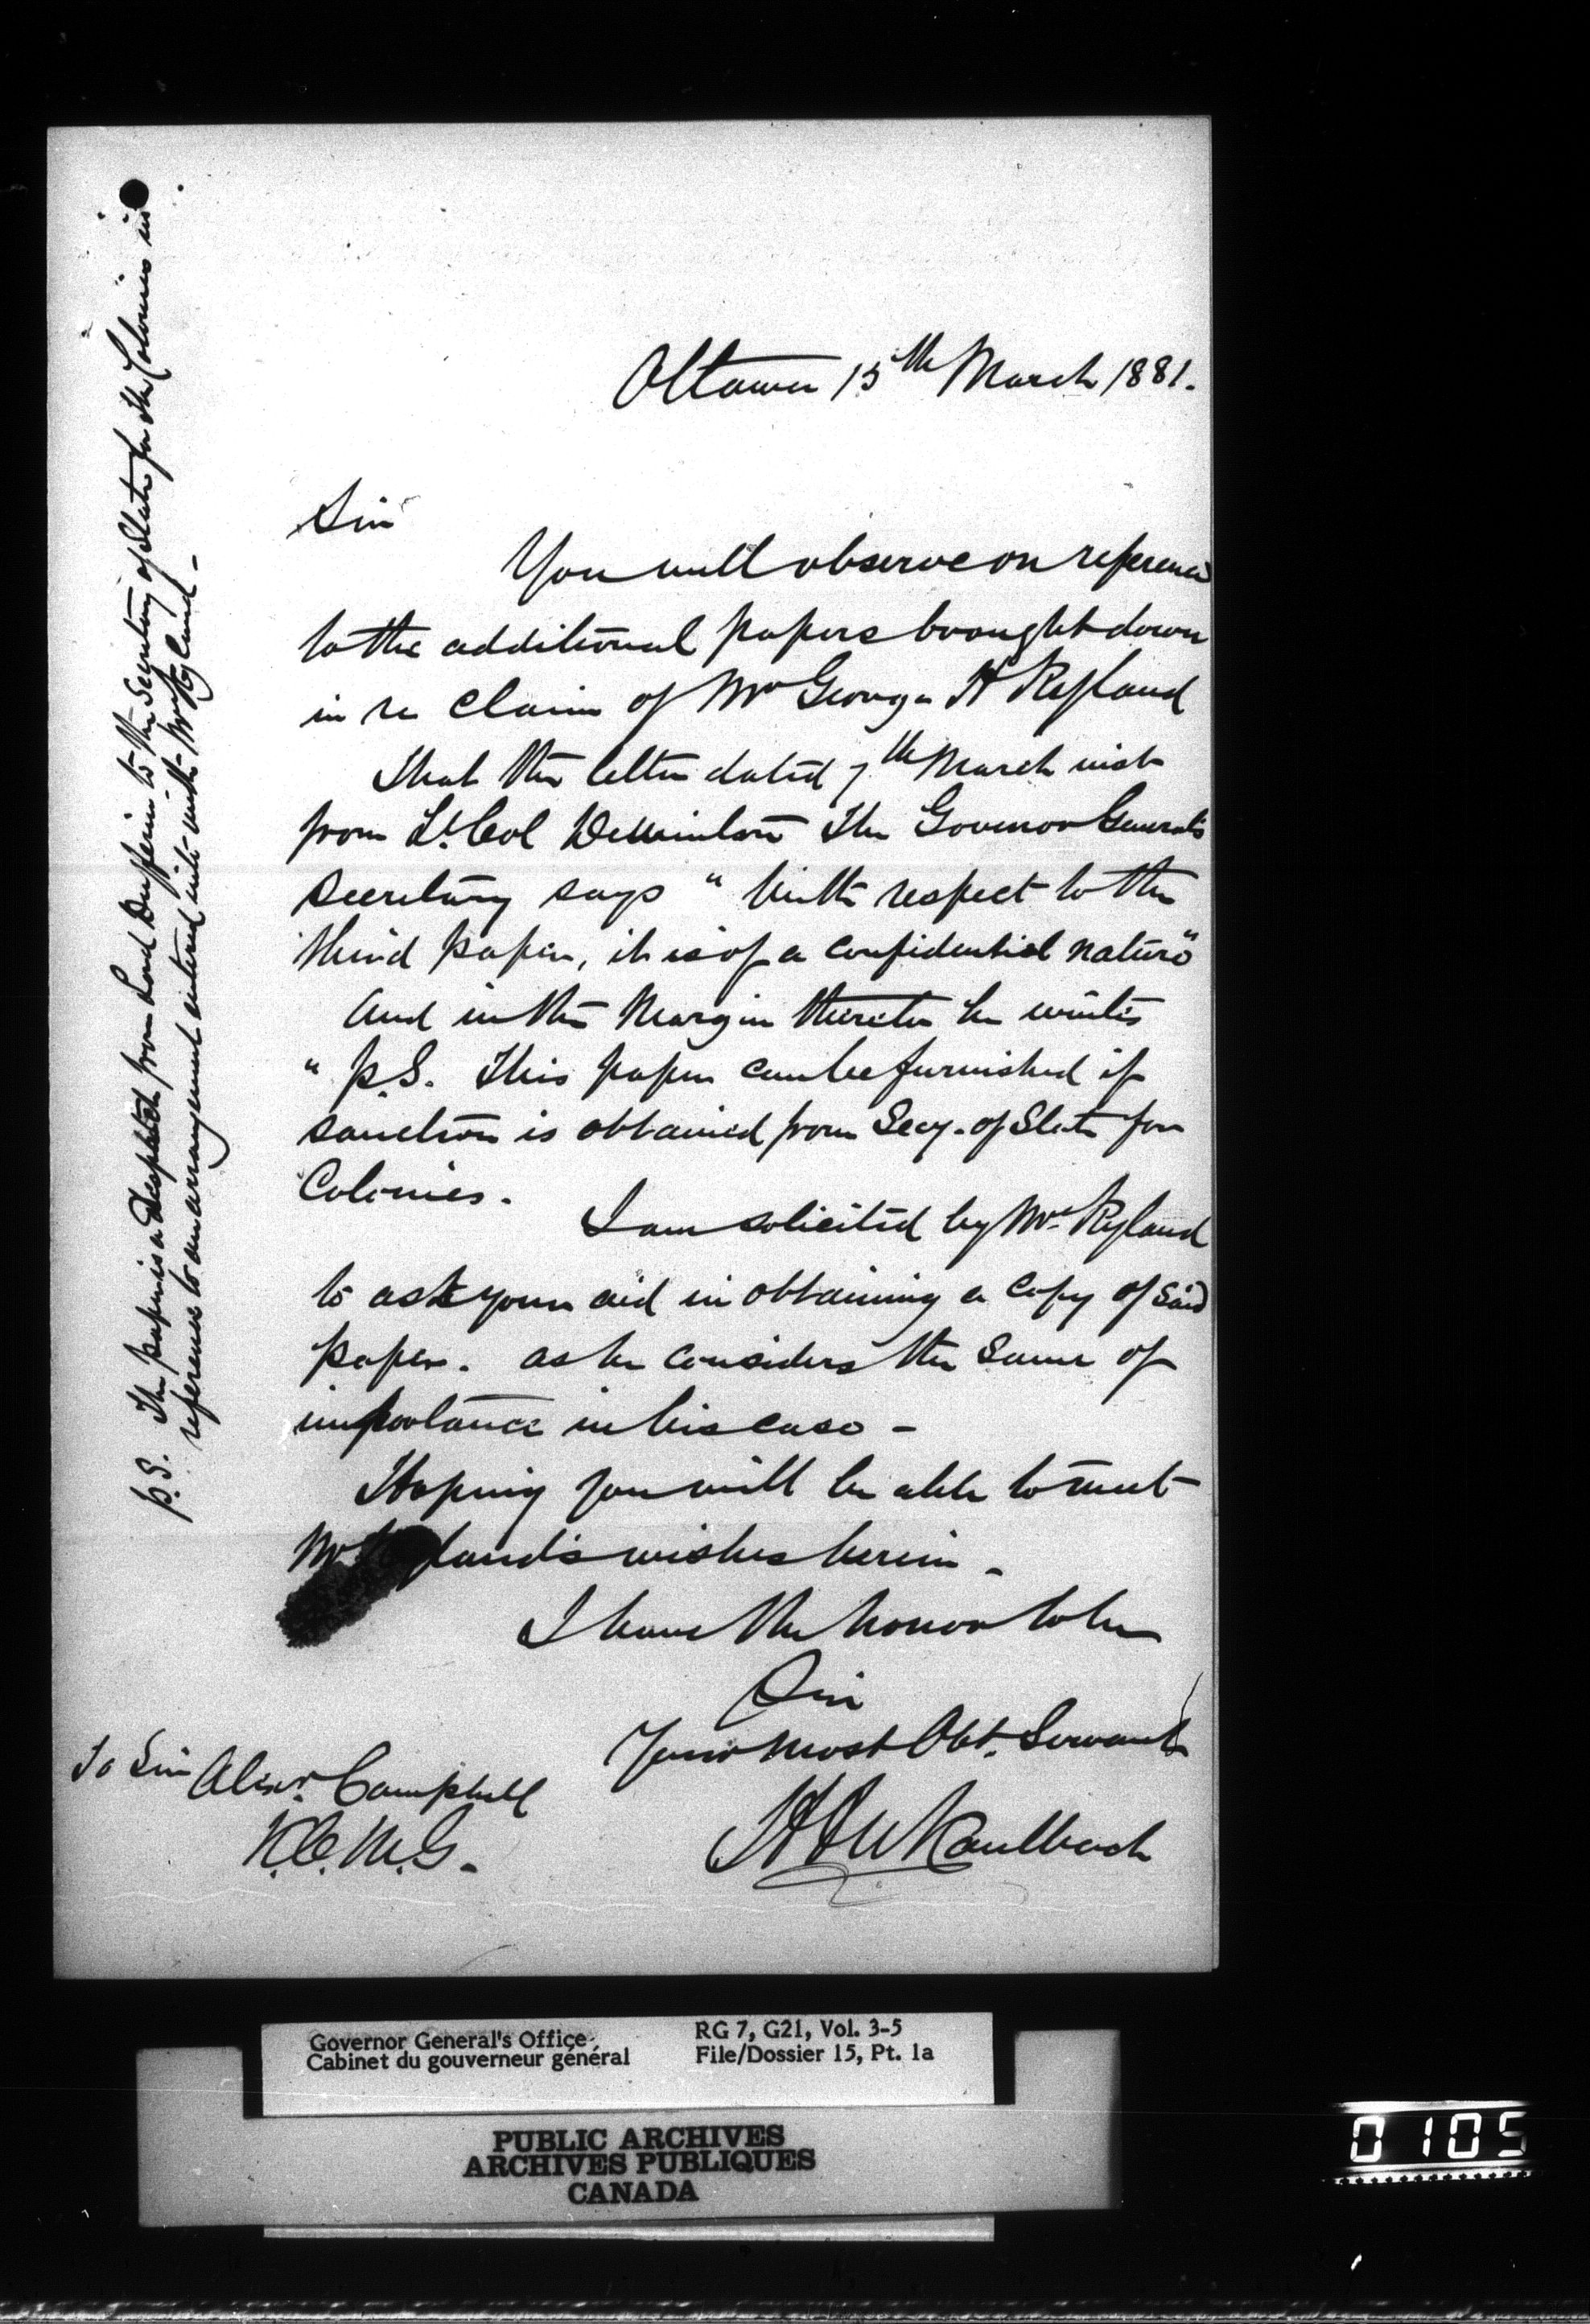 Ottawa 15th March 1881.
Sir
You will observe on reference
to the additional papers brought down
in re claim of Mr George H Ryland
That the letter dated 7th March inst
from Lt. Col DeWinton The Governor Generals
Secretary says "With respect to the
third paper, it is of a confidential nature"
And in the Margin thereto he writes
"P.S. This paper can be furnished if
sanction is obtained from Secy. of State for
Colonies.
I am solicited by Mr. Ryland
to ask your aid in obtaining a copy of said
paper. as he considers the same of
importance in his case -
Hoping you will be able to meet
Mr Rylands wishes herein -
I have the honor to be
Sir
Your most Obt. Servant
H A N Kaulbach
To Sir Alexr. Campbell
K.C.M.G.
P.S. The paper is a Despatch from Lord Dufferin to the Secretary of State for the Colonies in
reference to an arrangement entered into with Mr Ryland -
Governor General's Office
Cabinet du gouverneur général
RG 7, G21, Vol. 3-5
File/Dossier 15, Pt. 1a
PUBLIC ARCHIVES
ARCHIVES PUBLIQUES
CANADA
0105